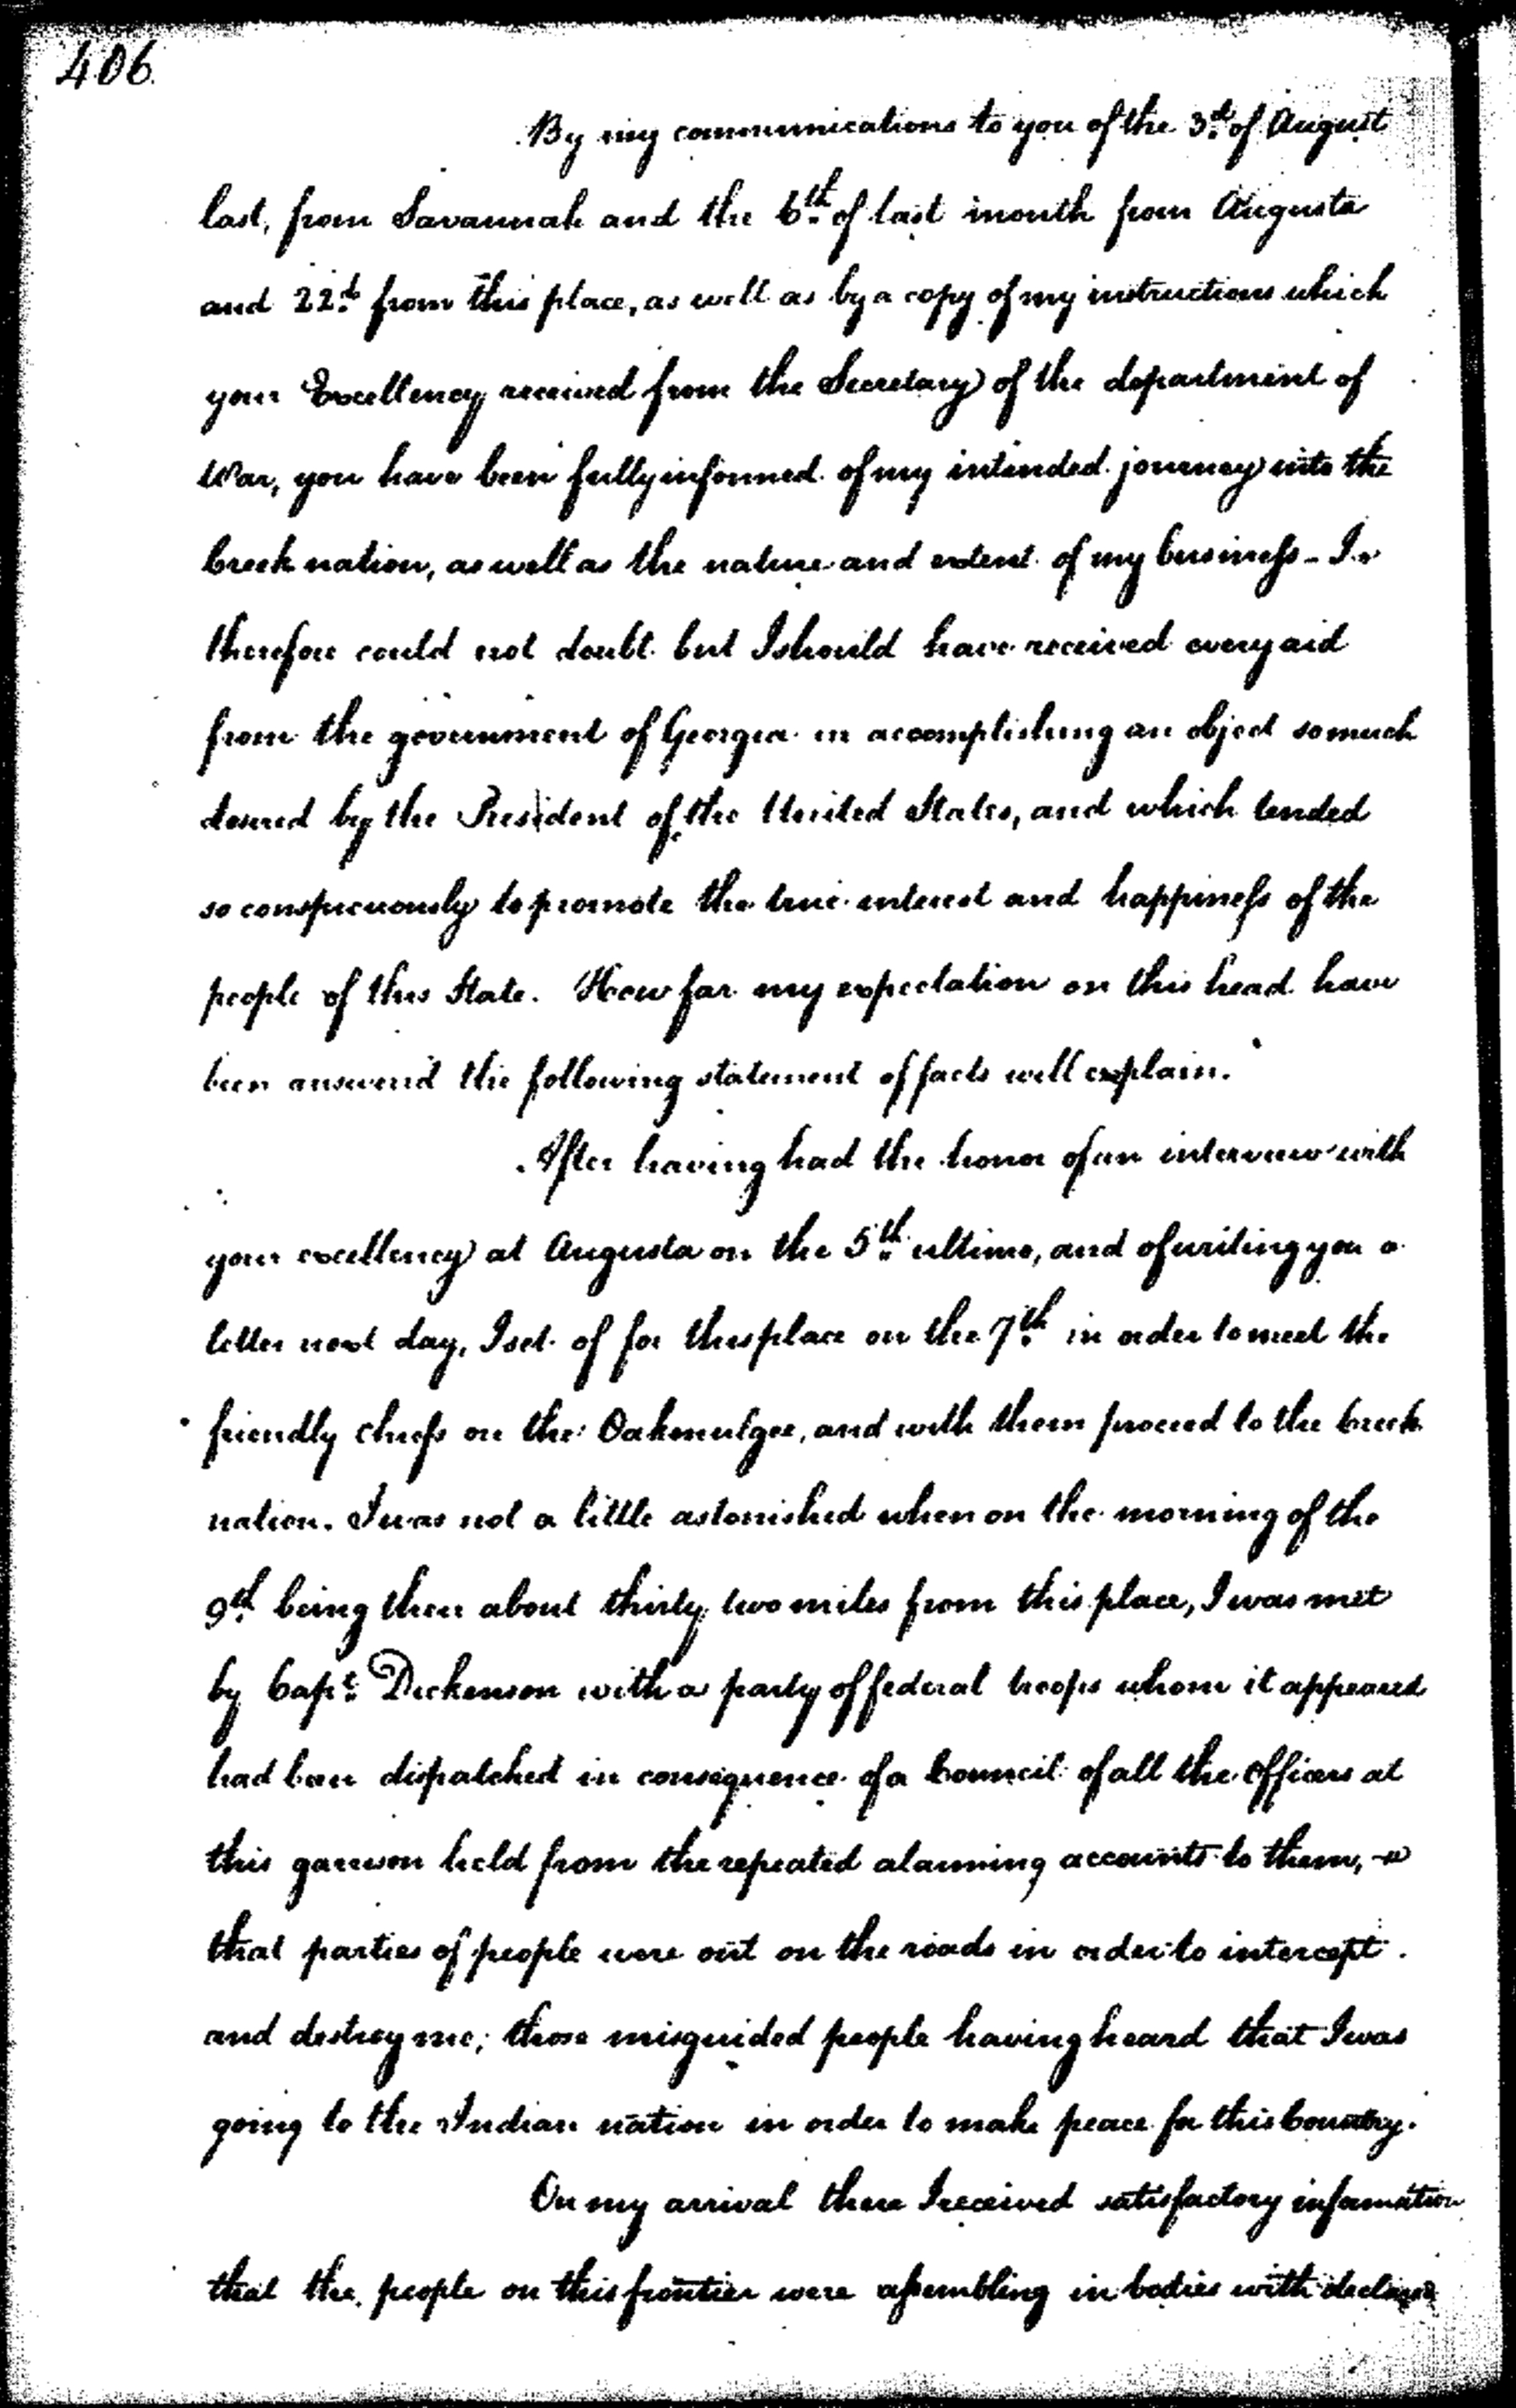 406.
By my communications to you of the 3d. of August
last, from Savannah and the 6th. of last month from Augusta
and 22d. from this place, as well as by a copy of my instructions which
your Excellency received from the Secretary of the department of
War, you have been fully informed of my intended journey into the
Creek nation, as well as the nature and extent of my business - I
therefore could not doubt but I should have received every aid
from the government of Georgia in accomplishing an object so much
desired by the President of the United States, and which tended
so conspicuously to promote the true interest and happiness of the
people of this State. How far my expectation on this head have
been answered the following statement of facts will explain.
After having had the honor of an interview with
your excellency at Augusta on the 5th. ultimo, and of writing you a
letter next day, I set of for this place on the 7th. in order to meet the
friendly chiefs on the Oakmulgee, and with them proceed to the Creek
nation. I was not a little astonished when on the morning of the
9th. being then about thirty two miles from this place, I was met
by Capt. Dickenson with a party of federal troops whom it appeared
had been dispatched in consequence of a Council of all the officers at
this garrison held from the repeated alarming accounts to them,
that parties of people were out on the roads in order to intercept
and destroy me; those misguided people having heard that I was
going to the Indian nation in order to make peace for this Country.
On my arrival there I received satisfactory information
that the people on this frontier were assembling in bodies with declared